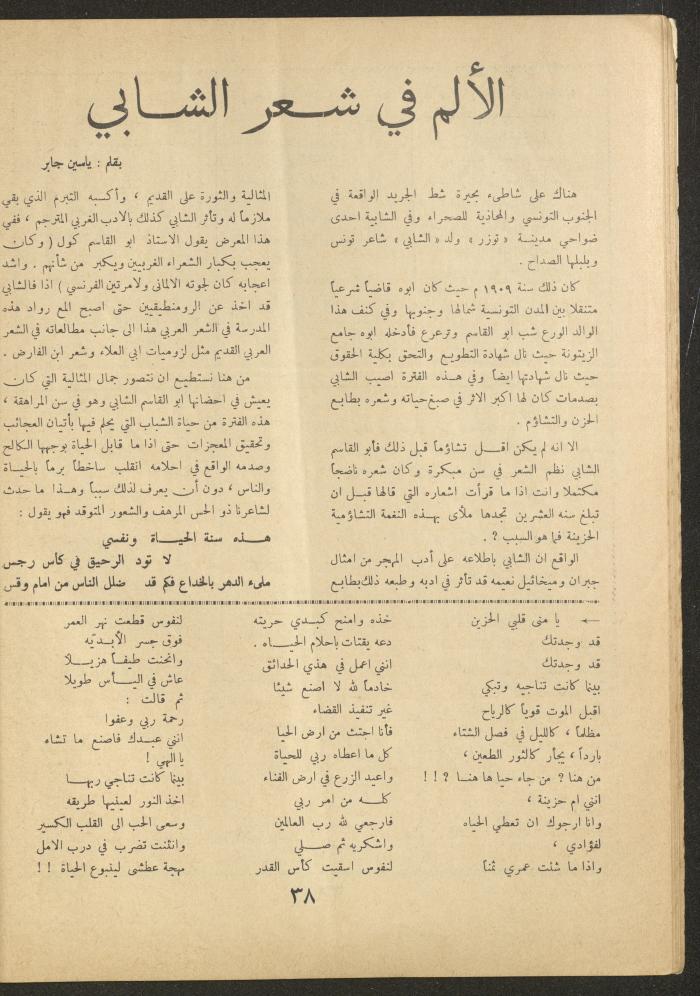 الألم في شعر الشابي
بقلم : ياسين جابر
هناك على شاطىء بحيرة شط الجريد الواقعة في
الجنوب التونسي والمحاذية للصحراء وفي الشابية احدى
ضواحي مدينة « توزر » ولد « الشابي » شاعر تونس
وبلبلها الصداح .
كان ذلك سنة ١٩٠٩ م حيث كان ابوه قاضياً شرعياً
متنقلا بين المدن التونسية شمالها وجنوبها وفي كنف هذا
الوالد الورع شب ابو القاسم وترعرع فأدخله ابوه جامع
الزيتونة حيث نال شهادة التطويع والتحق بكلية الحقوق
حيث نال شهادتها ايضاً وفي هذه الفترة اصيب الشابي
بصدمات كان لها اكبر الاثر في صبغ حياته وشعره بطابع
الحزن والتشاؤم .
الا انه لم يكن اقل تشاؤماً قبل ذلك فأبو القاسم
الشابي نظم الشعر في سن مبكرة وكان شعره ناضجاً
مكتملا وانت اذا ما قرأت اشعاره التي قالها قبل ان
تبلغ سنه العشرين تجدها ملأى بهذه النغمة التشاؤمية
الحزينة فما هو السبب ? .
الواقع ان الشابي باطلاعه على أدب المهجر من امثال
جبران وميخائيل نعيمه قد تأثر في ادبه وطبعه ذلك بطابع
المثالية والثورة على القديم ، وأكسبه التبرم الذي بقي
ملازماً له وتأثر الشابي كذلك بالادب الغربي المترجم ، ففي
هذا المعرض يقول الاستاذ ابو القاسم كول ( وكان
يعجب بكبار الشعراء الغربيين ويكبر من شأنهم . واشد
اعجابه كان لجوته الالمانى ولامرتين الفرنسي ) اذا فالشابي
قد اخذ عن الرومنطيقيين حتى اصبح المع رواد هذه
المدرسة في الشعر العربي هذا الى جانب مطالعاته في الشعر
العربي القديم مثل لزوميات ابي العلاء وشعر ابن الفارض .
من هنا نستطيع ان نتصور جمال المثالية التي كان
يعيش في احضانها ابو القاسم الشابي وهو في سن المراهقة ،
هذه الفترة من حياة الشباب التي يحلم فيها بأتيان العجائب
وتحقيق المعجزات حتى اذا ما قابل الحياة بوجهها الكالح
وصدمه الواقع في احلامه انقلب ساخطاً برماً بالحياة
والناس ، دون أن يعرف لذلك سبباً وهذا ما حدث
لشاعرنا ذو الحس المرهف والشعور المتوقد فهو يقول :
هذه سنة الحياة ونفسي
لا تود الرحيق في كأس رجس
ملىء الدهر بالخداع فكم قد ضلل الناس من امام وقس
← يا منى قلبي الحزين
قد وجدتك
قد وجدتك
بينما كانت تناجيه وتبكي
اقبل الموت قوياً كالرياح
مظلماً ، كالليل في فصل الشتاء
بارداً ، يجأر كالثور الطعين ،
من هنا ? من جاء حيا ها هنا ? !!
انني ام حزينة ،
وانا ارجوك ان تعطي الحياه
لفؤادي ،
واذا ما شئت عمري ثمناً
خذه وامنح كبدي حريته
دعه يقتات باحلام الحياه .
انني اعمل في هذي الحدائق
خادماً لله لا اصنع شيئا
غير تنفيذ القضاء
فأنا اجتث من ارض الحيا
كل ما اعطاه ربي للحياة
واعيد الزرع في ارض الفناء
كله من امر ربي
فارجعي لله رب العالمين
واشكريه ثم صلي
لنفوس اسقيت كأس القدر
لنفوس قطعت نهر العمر
فوق جسر الأبديّه
وانحنت طيفاً هزيلا
عاش في اليأس طويلا
ثم قالت :
رحمة ربي وعفوا
انني عبدك فاصنع ما تشاء
يا الهي !
بينما كانت تناجي ربها
اخذ النور لعينيها طريقه
وسعى الحب الى القلب الكسير
وانثنت تضرب في درب الامل
مهجة عطشى لينبوع الحياة !!
٣٨